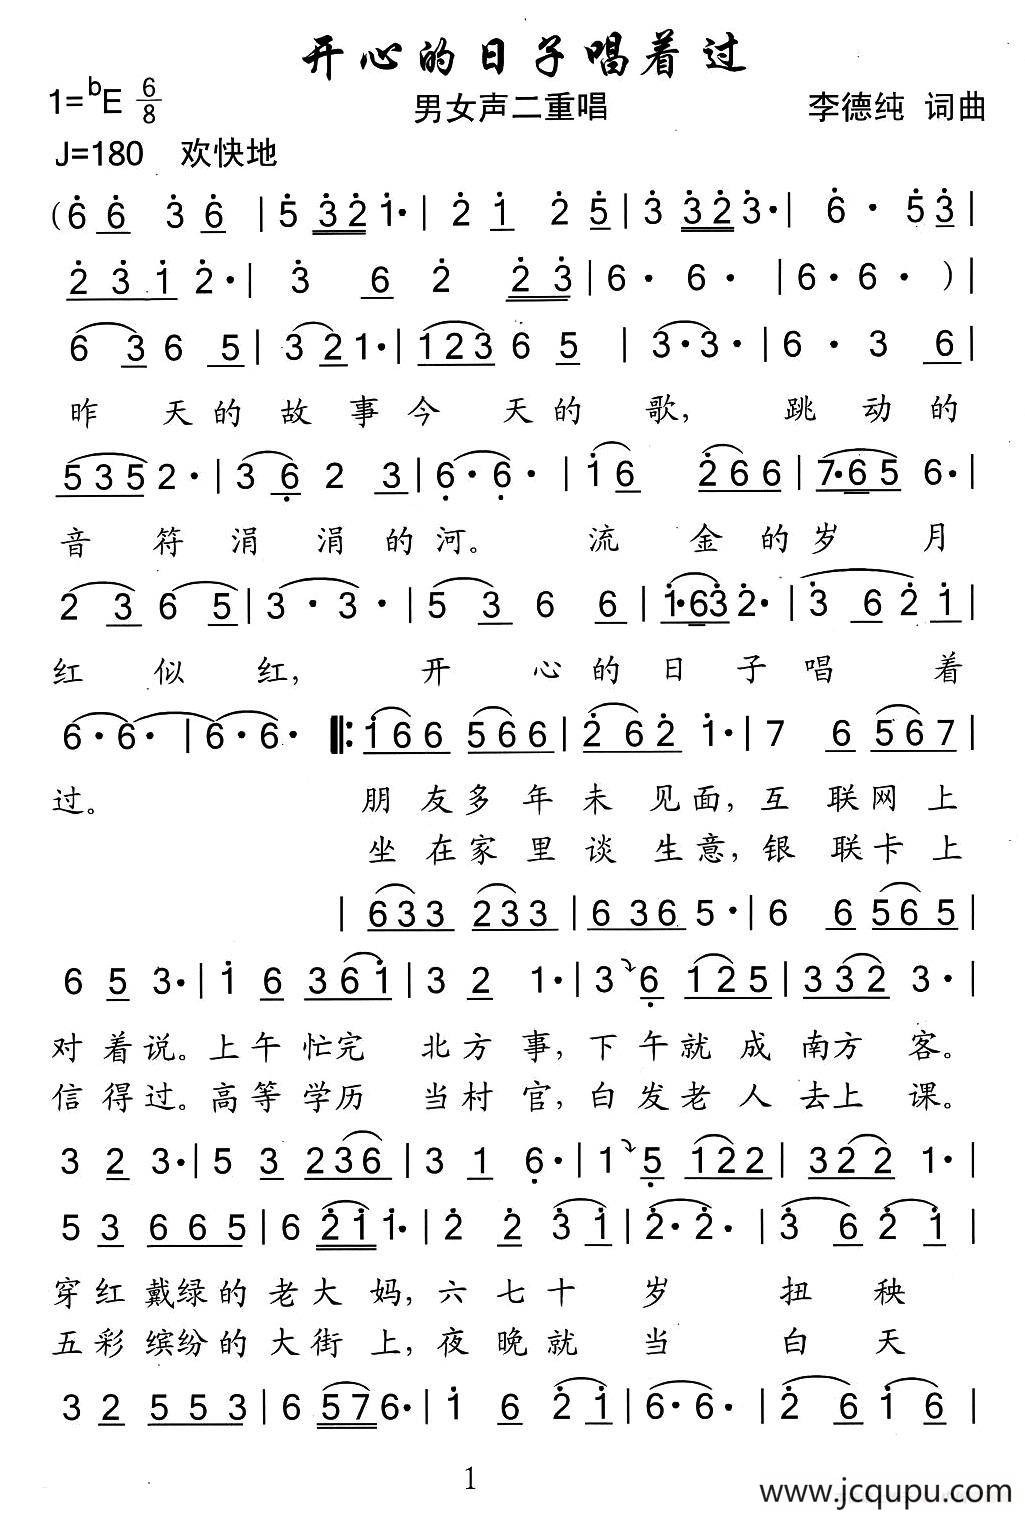 开心的日子唱着过
1=ᵇE 6/8 男女声二重唱 李德纯 词曲
J=180 欢快地
(6̇ 6̇ 3̇ 6̇ | 5̇ 3̇ 2̇ 1̇· | 2̇ 1̇ 2̇ 5̇ | 3̇ 3̇ 2̇ 3̇· | 6̇ · 5̇ 3̇ |
2̇ 3̇ 1̇ 2̇· | 3̇ 6 2̇ 2̇ 3̇ | 6· 6· | 6· 6· ) |
6 3 6 5 | 3 2 1· | 1 2 3 6 5 | 3· 3· | 6· 3 6 |
昨天的故事今天的歌，跳动的
5 3 5 2· | 3 6̣ 2 3 | 6̣· 6̣· | 1̇ 6 2̇ 6 6 | 7· 6 5 6· |
音符涓涓的河。流金的岁月
2 3 6 5 | 3· 3· | 5 3 6 6 | 1̇· 6 3̇ 2̇· | 3̇ 6 2̇ 1̇ |
红似红，开心的日子唱着
6· 6· | 6· 6· ‖: 1̇ 6 6 5 6 6 | 2̇ 6 2̇ 1̇· | 7 6 5 6 7 |
过。朋友多年未见面，互联网上
坐在家里谈生意，银联卡上
| 6 3 3 2 3 3 | 6 3 6 5· | 6 6 5 6 5 |
6 5 3· | 1̇ 6 3 6 1̇ | 3 2 1· | 3 6̣ 1 2 5 | 3 3 2 3· |
对着说。上午忙完北方事，下午就成南方客。
信得过。高等学历当村官，白发老人去上课。
3 2 3· | 5 3 2 3 6 | 3 1 6̣· | 1 5̣ 1 2 2 | 3 2 2 1· |
5 3 6 6 5 | 6 2̇ 1̇ 1̇· | 2̇ 2̇ 3̇ 1̇ | 2̇· 2̇· | 3̇ 6 2̇ 1̇ |
穿红戴绿的老大妈，六七十岁扭秧
五彩缤纷的大街上，夜晚就当白天
3 2 5 5 3 | 6 5 7 6· | 1̇ 6 2̇ 1̇ | 6· 6· | 2̇ 6 1̇ 6 |
1
www.jcqupu.com